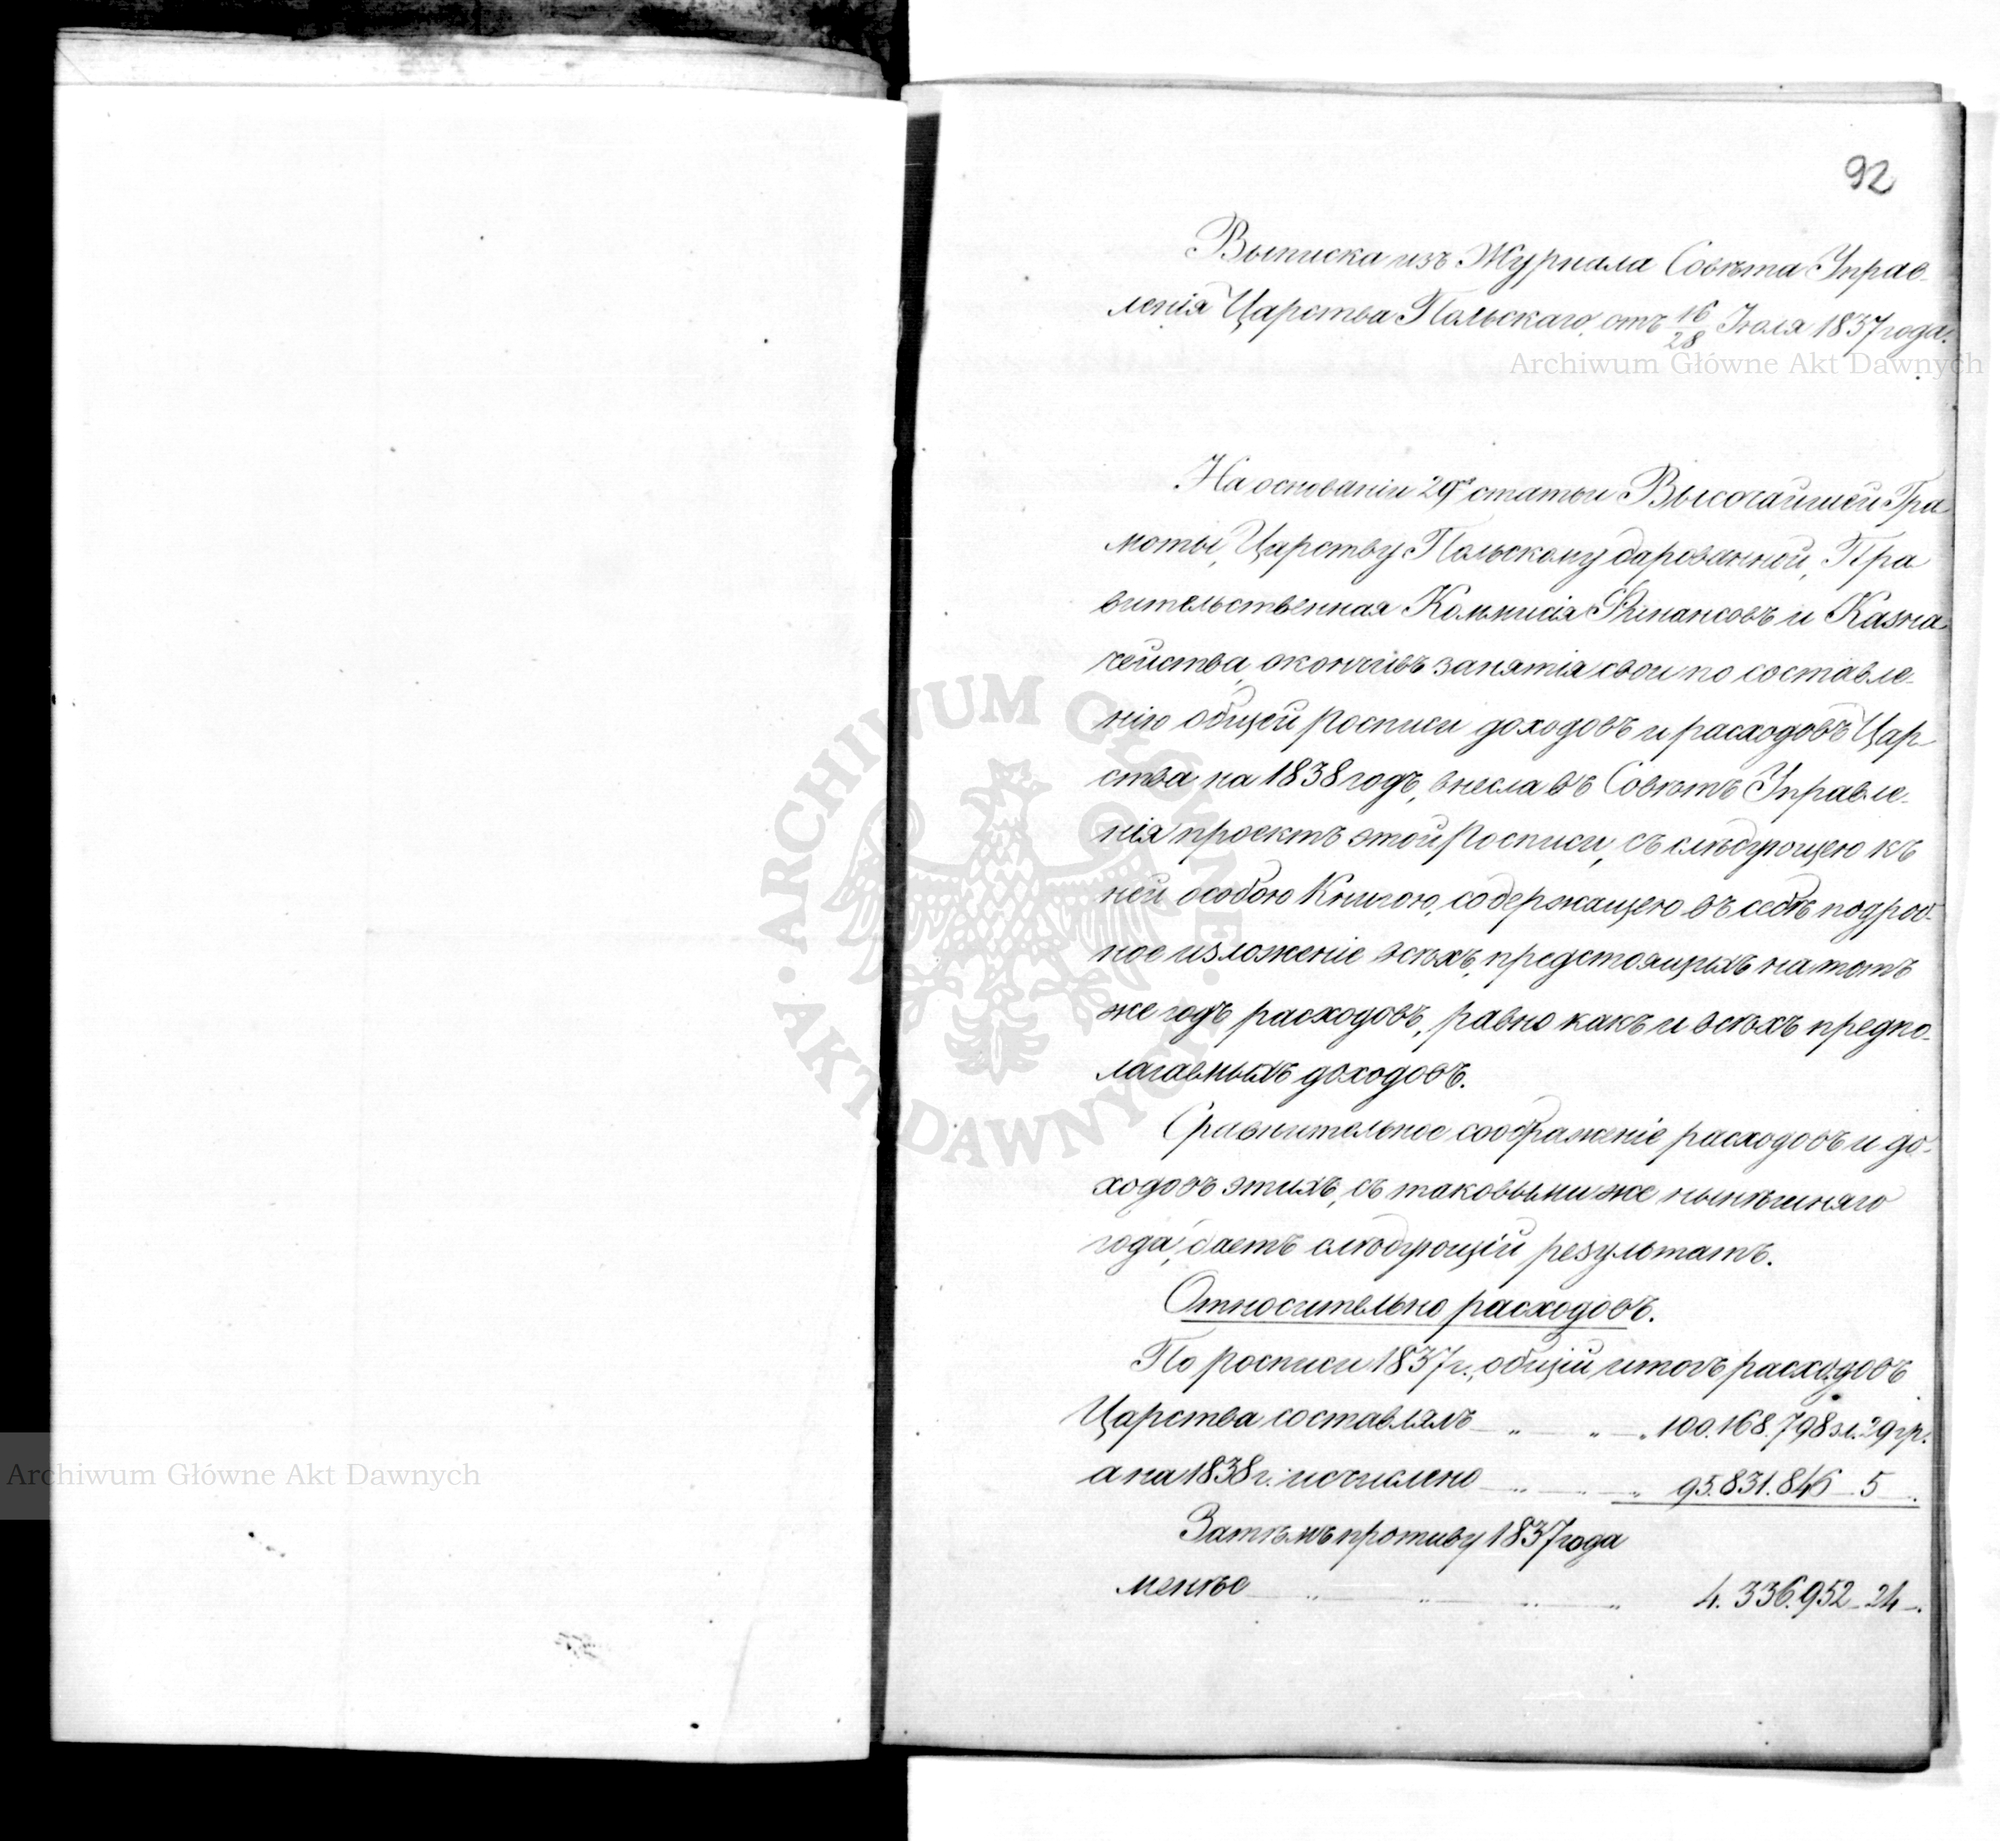 92
Выписка изъ Журнала Совѣта Управ-
ленія Царства Польскаго, отъ 16/28 Іюля 1837 года.
Archiwum Główne Akt Dawnych
На основаніи 29й статьи Высочайшей Гра
моты, Царству Польскому дарованной, Пра
вительственная Коммисія Финансовъ и Казна
чейства, окончивъ занятія свои по составле-
нію общей росписи доходовъ и расходовъ Цар
ства на 1838 годъ, внесла въ Совѣтъ Управле-
нія проектъ этой росписи, съ слѣдующею къ
ней особою Книгою, содержащею въ себѣ подроб-
ное изложеніе всѣхъ, предстоящихъ на тотъ
же годъ расходовъ, равно какъ и всѣхъ предпо-
лагаемыхъ доходовъ.
Сравнительное соображеніе расходовъ и до-
ходовъ этихъ, съ таковыми же нынѣшняго
года, даетъ слѣдующій результатъ.
Относительно расходовъ.
По росписи 1837 г., общій итогъ расходовъ
Царства составлялъ — „ — „ — „ 100.168.798 зл. 29 гр.
а на 1838 г. исчислено — „ — „ — „ 95.831.846 — 5 — .
Затѣмъ противу 1837 года
менѣе — „ — „ — „ — „ 4.336.952 — 24 — .
ARCHIWUM GŁÓWNE
AKT DAWNYCH
Archiwum Główne Akt Dawnych